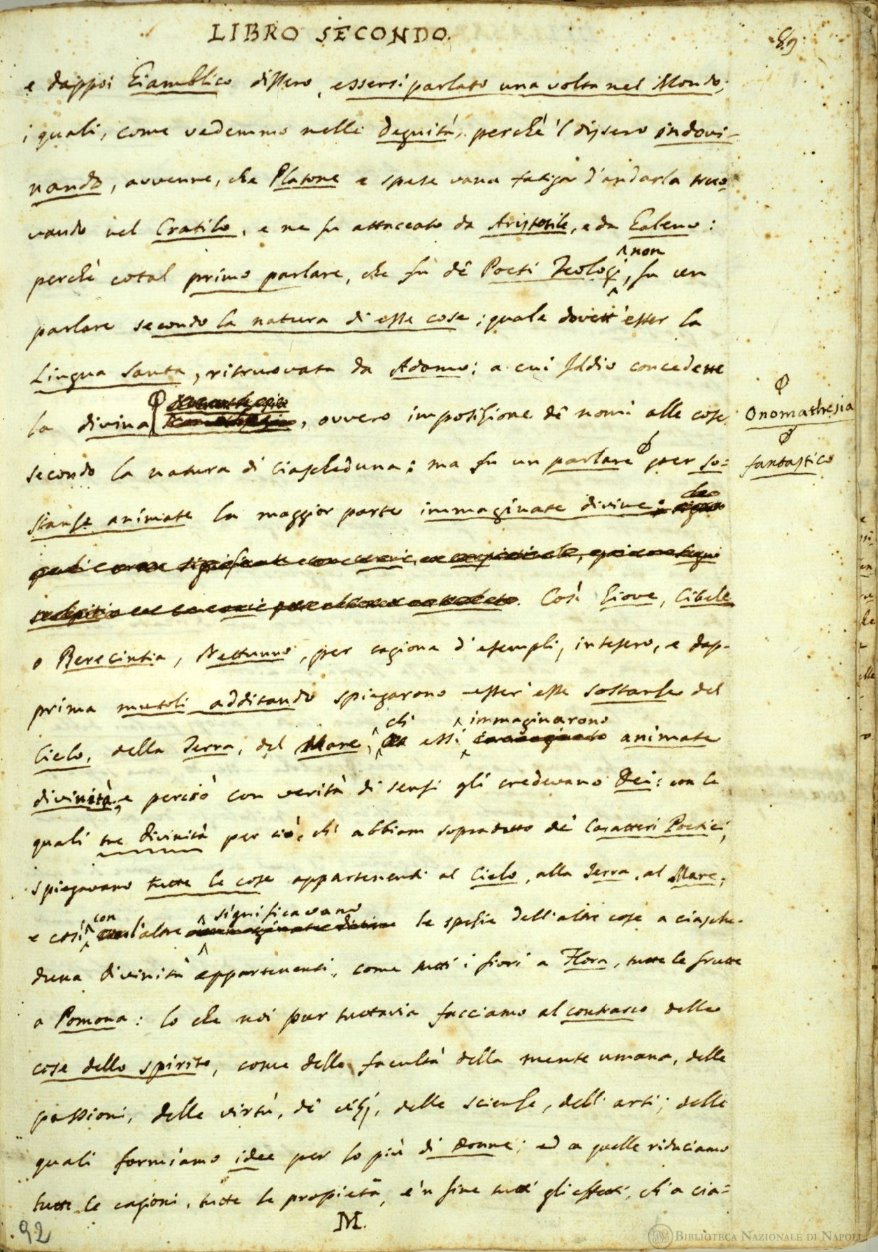 LIBRO SECONDO.
89
e dappoi Giamblico dissero, essersi parlato una volta nel Mondo;
i quali, come vedemmo nelle Degnità, perchè 'l dissero indovi-
nando, avvenne, che Platone e spese vana fatiga d'andarla truo-
vando nel Cratilo, e ne fu attaccato da Aristotile, e da Galeno:
perchè cotal primo parlare, che fu de' Poeti Teologi, non fu un
parlare secondo la natura di esse cose; quale dovett' esser la
Lingua Santa, ritruovata da Adamo; a cui Iddio concedette
la divina Onomathesia, ovvero imposizione de' nomi alle cose
secondo la natura di ciascheduna: ma fu un parlare fantastico per so-
stanze animate la maggior parte immaginate divine:
Così Giove, Cibele
o Berecintia, Nettunno, per cagione d'esempli, intesero, e dap-
prima mutoli additando spiegarono esser esse sostanze del
Cielo, della Terra, del Mare, ch' essi immaginarono animate
divinità, e perciò con verità di sensi gli credevano Dei: con le
quali tre divinità per ciò, ch' abbiam sopradetto de' Caratteri Poetici,
spiegavano tutte le cose appartenenti al Cielo, alla Terra, al Mare;
e così con l'altre significavano le spezie dell'altre cose a ciasche-
duna divinità appartenenti, come tutti i fiori a Flora, tutte le frutte
a Pomona: lo che noi pur tuttavia facciamo al contrario delle
cose dello spirito, come delle facultà della mente umana, delle
passioni, delle virtù, de' vizj, delle scienze, dell' arti; delle
quali formiamo idee per lo più di Donne; ed a quelle riduciamo
tutte le cagioni, tutte le propietà, e 'n fine tutti gli effetti, ch' a cia-
M.
92
BIBLIOTECA NAZIONALE DI NAPOLI